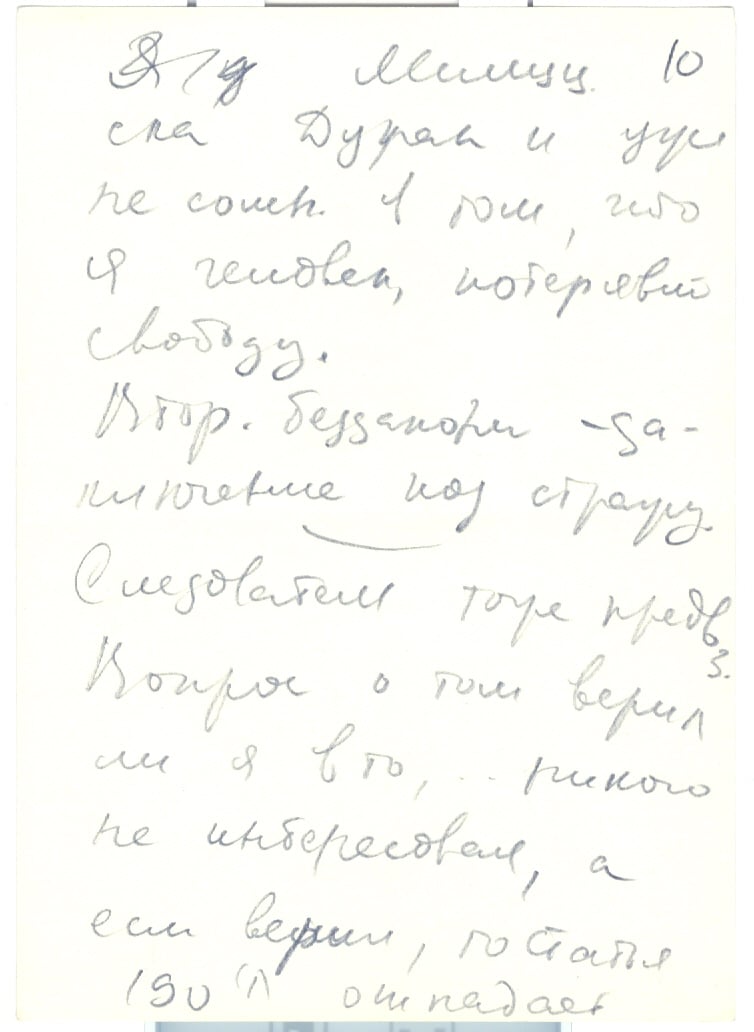 Милиц. 10
ска Дурак и уже
не сомн. в том, что
я человек, потерявш
свободу.
Втор. беззакони - за-
ключение под стражу.
Следователи тоже предв
з.
Вопрос о том верил
ли я в то, .. никого
не интересовал, а
если верил, то статья
190 (1) отпадает